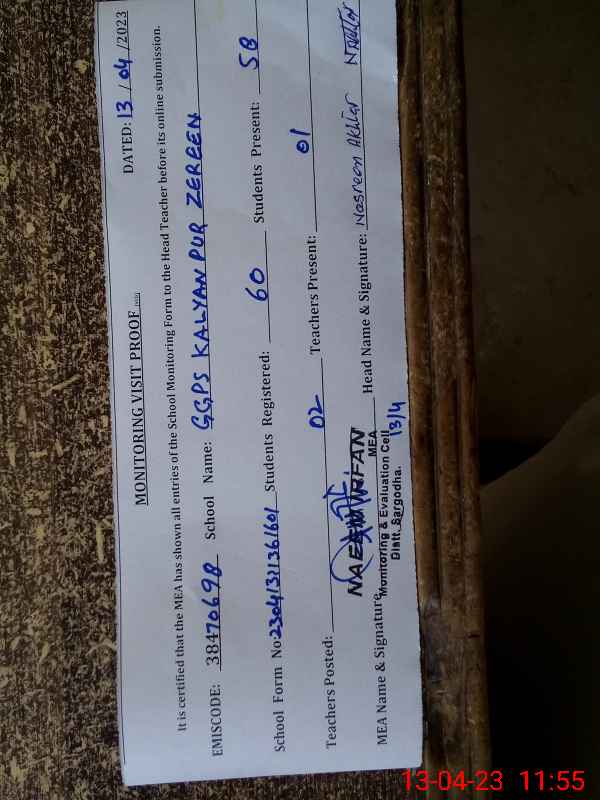 MONITORING VISIT PROOF
DATED: 13 / 04 /2023
It is certified that the MEA has shown all entries of the School Monitoring Form to the Head Teacher before its online submission.
EMISCODE: 38470698 School Name: GGPS KALYAN PUR ZEREEN
School Form No: 23041311361601 Students Registered: 60 Students Present: 58
Teachers Posted: 02 Teachers Present: 01
MEA Name & Signature Head Name & Signature: Nasreen Akhtar
NAEEM IRFAN
MEA
Monitoring & Evaluation Cell
Distt. Sargodha.
13/4
13-04-23 11:55